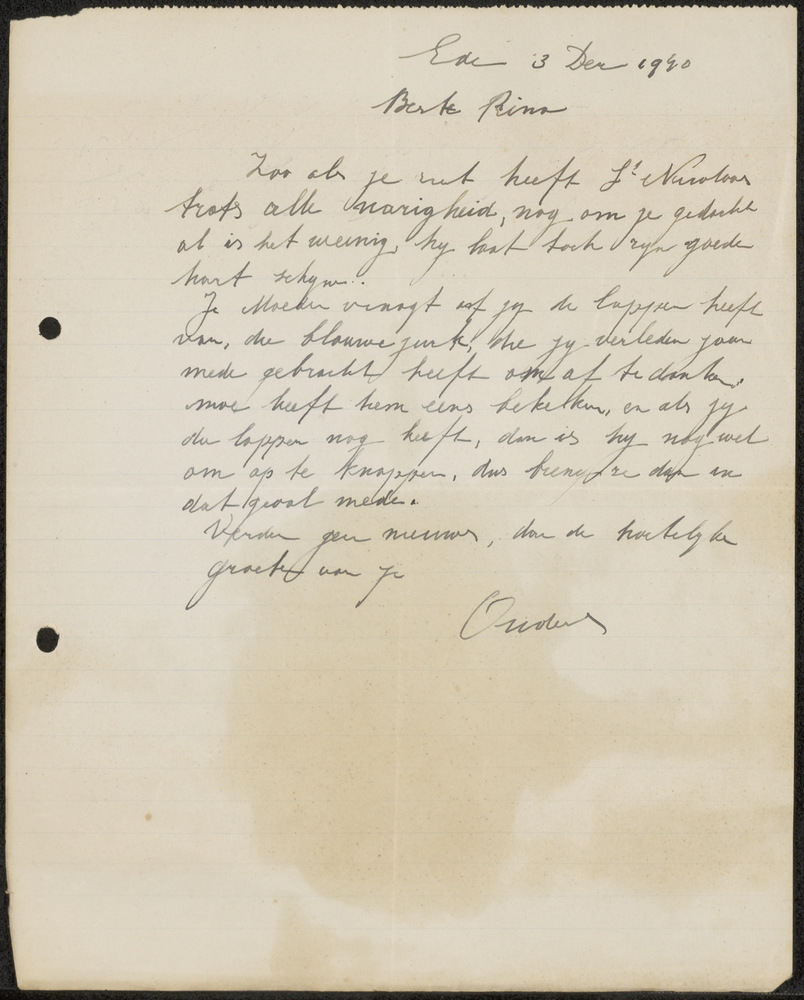 Ede 3 Dec 1940
Beste Rina
Zoo als je ziet heeft St Nicolaas
trots alle narigheid, nog om je gedacht
al is het weinig, hy laat toch zyn goede
hart schyn..
Je Moeder vraagt of jy de lappen heeft
van, die blauwe jurk, die jy verleden jaar
mede gebracht heeft om af te danken.
moe heeft hem eens bekeken, en als jy
die lappen nog heeft, dan is hy nog wel
om op te knappen, dus breng ze dan in
dat geval mede.
Verder geen nieuws, dan de hartelyke
groeten van je
Ouders